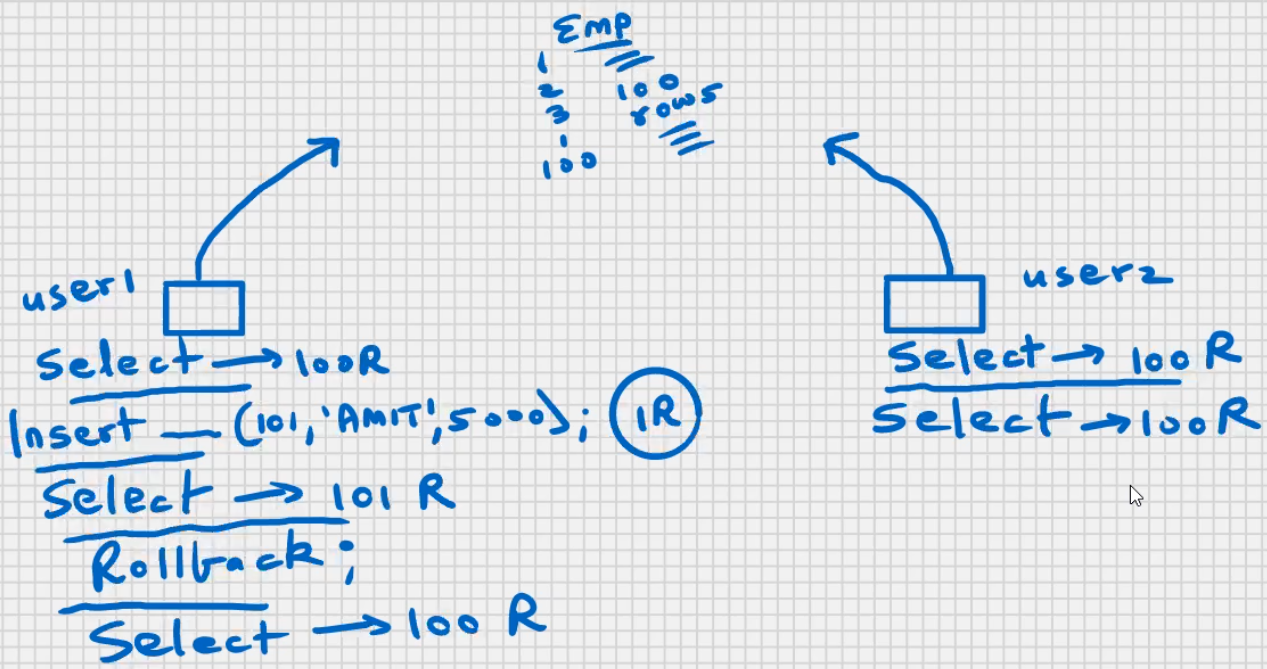 Emp
1
2
3
100
100
rows
user1
Select → 100R
Insert — (101, 'AMIT', 5000); 1R
Select → 101 R
Rollback;
Select → 100 R
user2
Select → 100 R
Select → 100 R